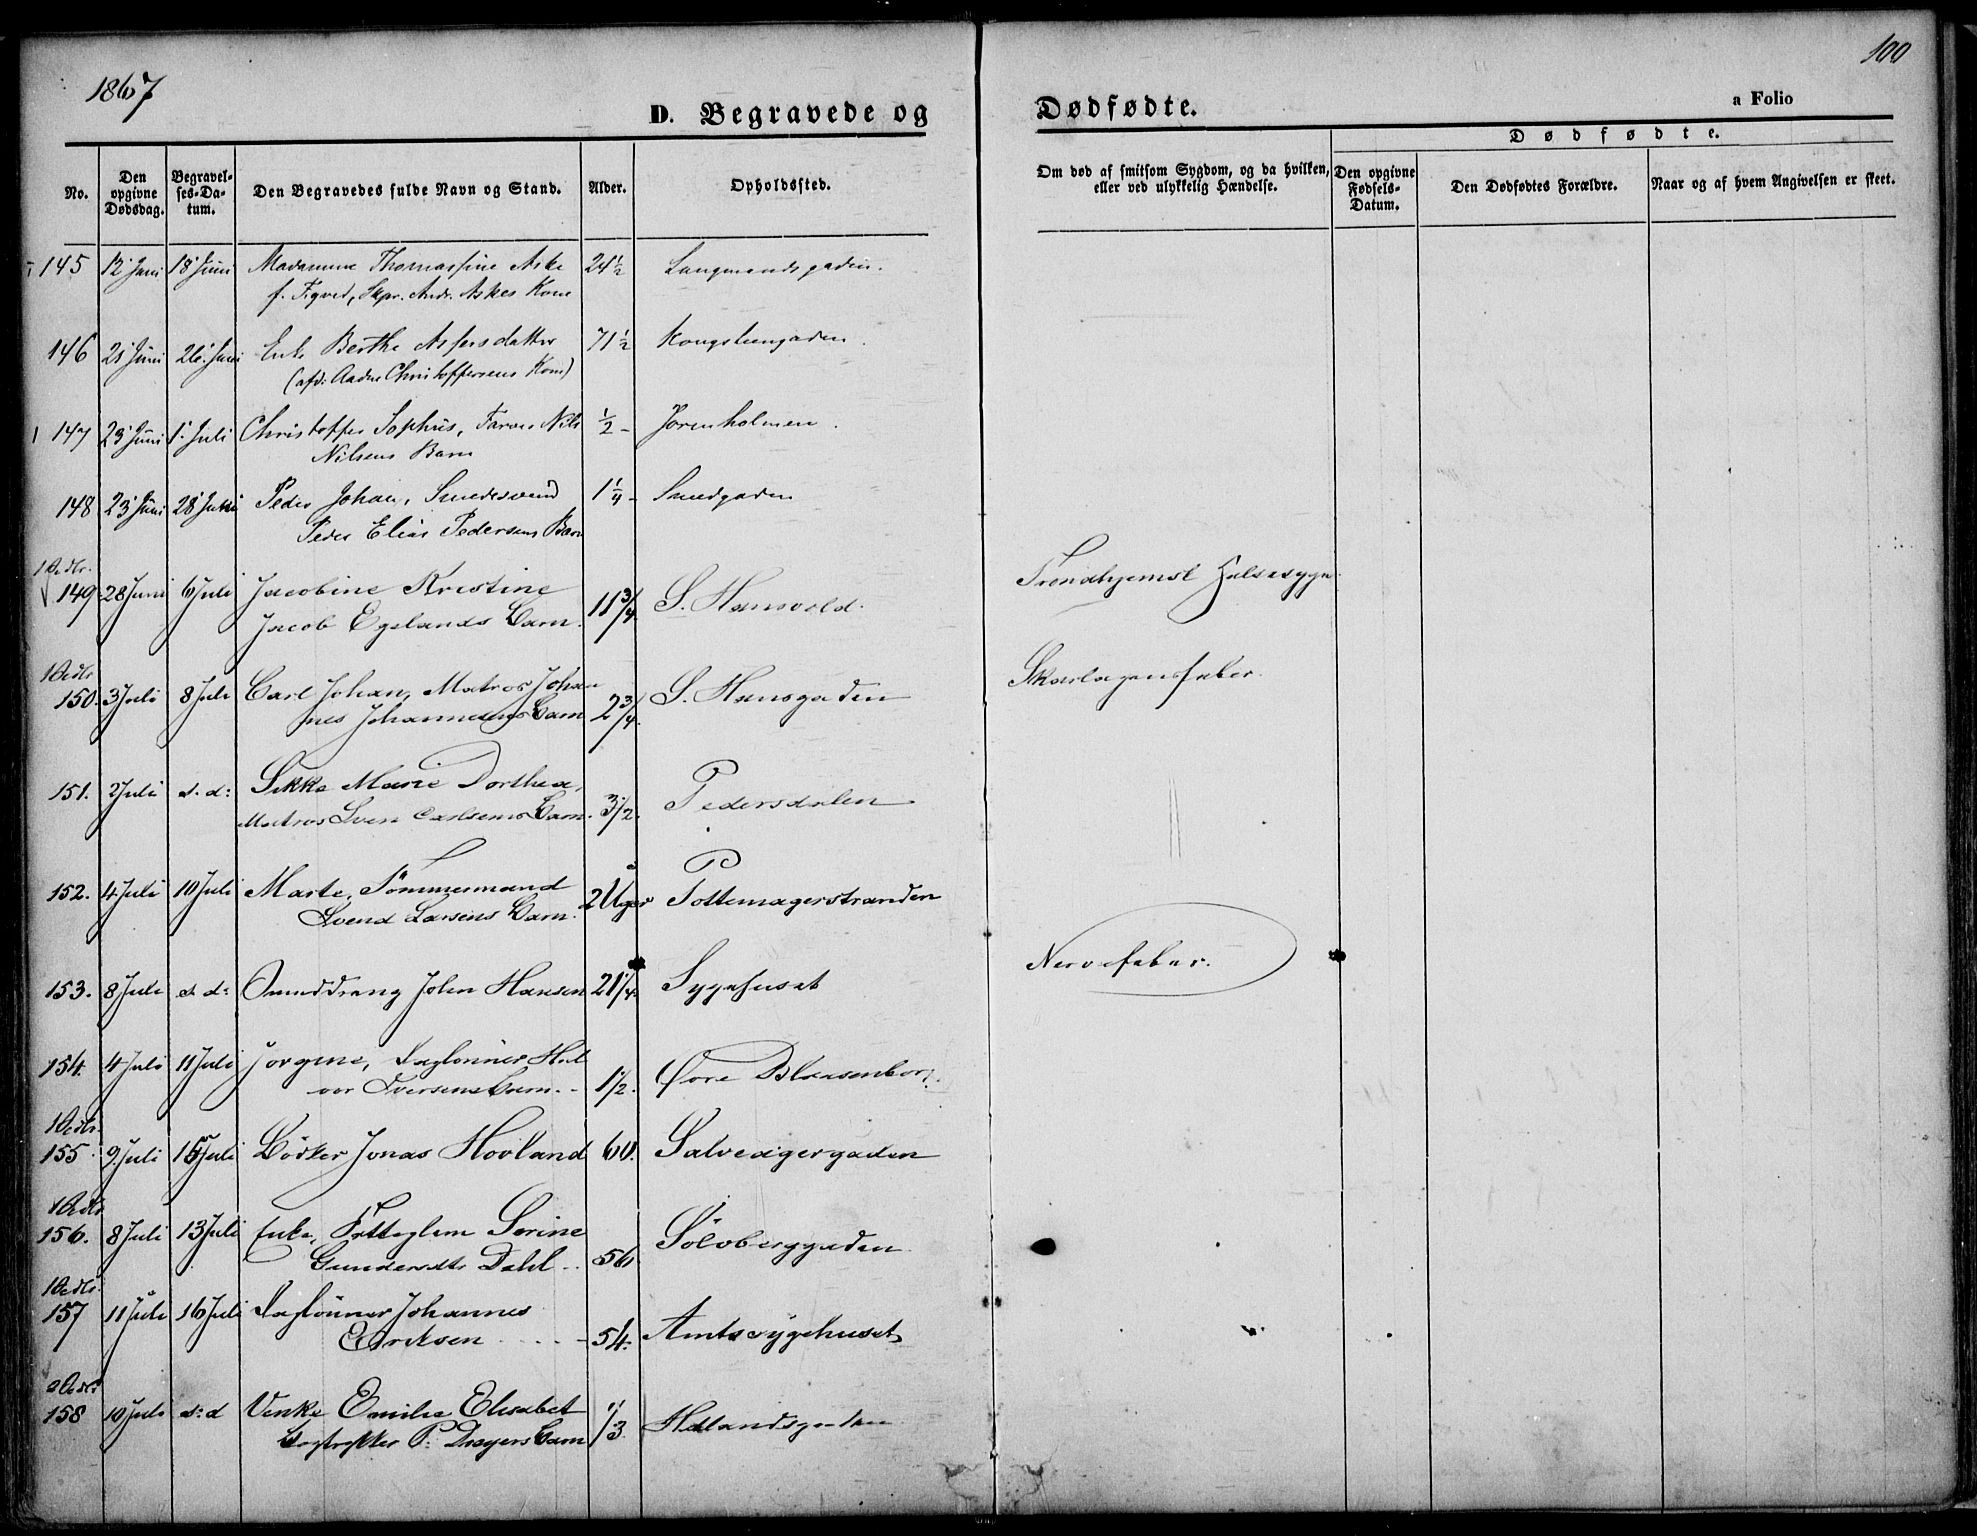 1867
100
D. Begravede og Dødfødte.
a Folio
No.
Den opgivne Dødsdag.
Begravelses-Datum.
Den Begravedes fulde Navn og Stand.
Alder.
Opholdssted.
Om død af smitsom Sygdom, og da hvilken, eller ved ulykkelig Hændelse.
Dødfødte.
Den opgivne Fødsels-Datum.
Den Dødfødtes Forældre.
Naar og af hvem Angivelsen er skeet.
145 12' Juni 18' Juni Madamme Thomassine Aske 24 1/2 Langmandsgaden.
f. Tqved, Skpr. Andr. Askes Kone
146 21' Juni 26' Juni Enke Berthe Aspersdatter 71 1/2 Kongsteengaden.
(afd: Aadne Christoffersens Kone)
147 23' Juni 1' Juli Christoffer Sophus, Farver Nils 1/2 - Jorenholmen.
Nilsens Barn
148 23' Juni 28' Juni Peder Johan, Smedesvend 1 1/4 - Smedgaden
Peder Elias Pedersens Barn
149 28 Juni 6 Juli Jacobine Kristine 11 3/4 S. Hansvold.
Jacob Egelands Barn.
Trondhjemsk Halssyge.
150. 3 Juli 8 Juli Carl Johan, Matros Johan 2 3/4. S. Hansgaden
nes Johannesens Barn
Skarlagensfeber.
151. 2 Juli s. d: Sikke Marie Dorthea, 3 1/2. Pedersdalen
Matros Sven Carlsens Barn.
"
152. 4 Juli 10 Juli Marte, Tømmermand 2 Uger Pottemagerstranden
Svend Larsens Barn.
153. 8 Juli s d: Ounddreng John Hansen 21 1/4 Sygehuset
Nervefeber.
154. 4 Juli 11 Juli Jørgine, Daglønner Hal 1 1/2. Øvre Blaasenborg.
vor Iversens Barn. -
155. 9. Juli 15 Juli Bødker Jonas Hovland 60. Salveagergaden
156. 8 Juli 13 Juli Enke, Fattiglem Serine 56 Sølvberggaden.
Gundersdtr Dahl. -
157 11 Juli 16 Juli Daglønner Johannes
Eriksen - - - - 54. Amtssygehuset
158 10 Juli s: d Venke Emilie Elisabet 1/3 Hetlandsgaden
Bogtrykker P. Dreyers Barn